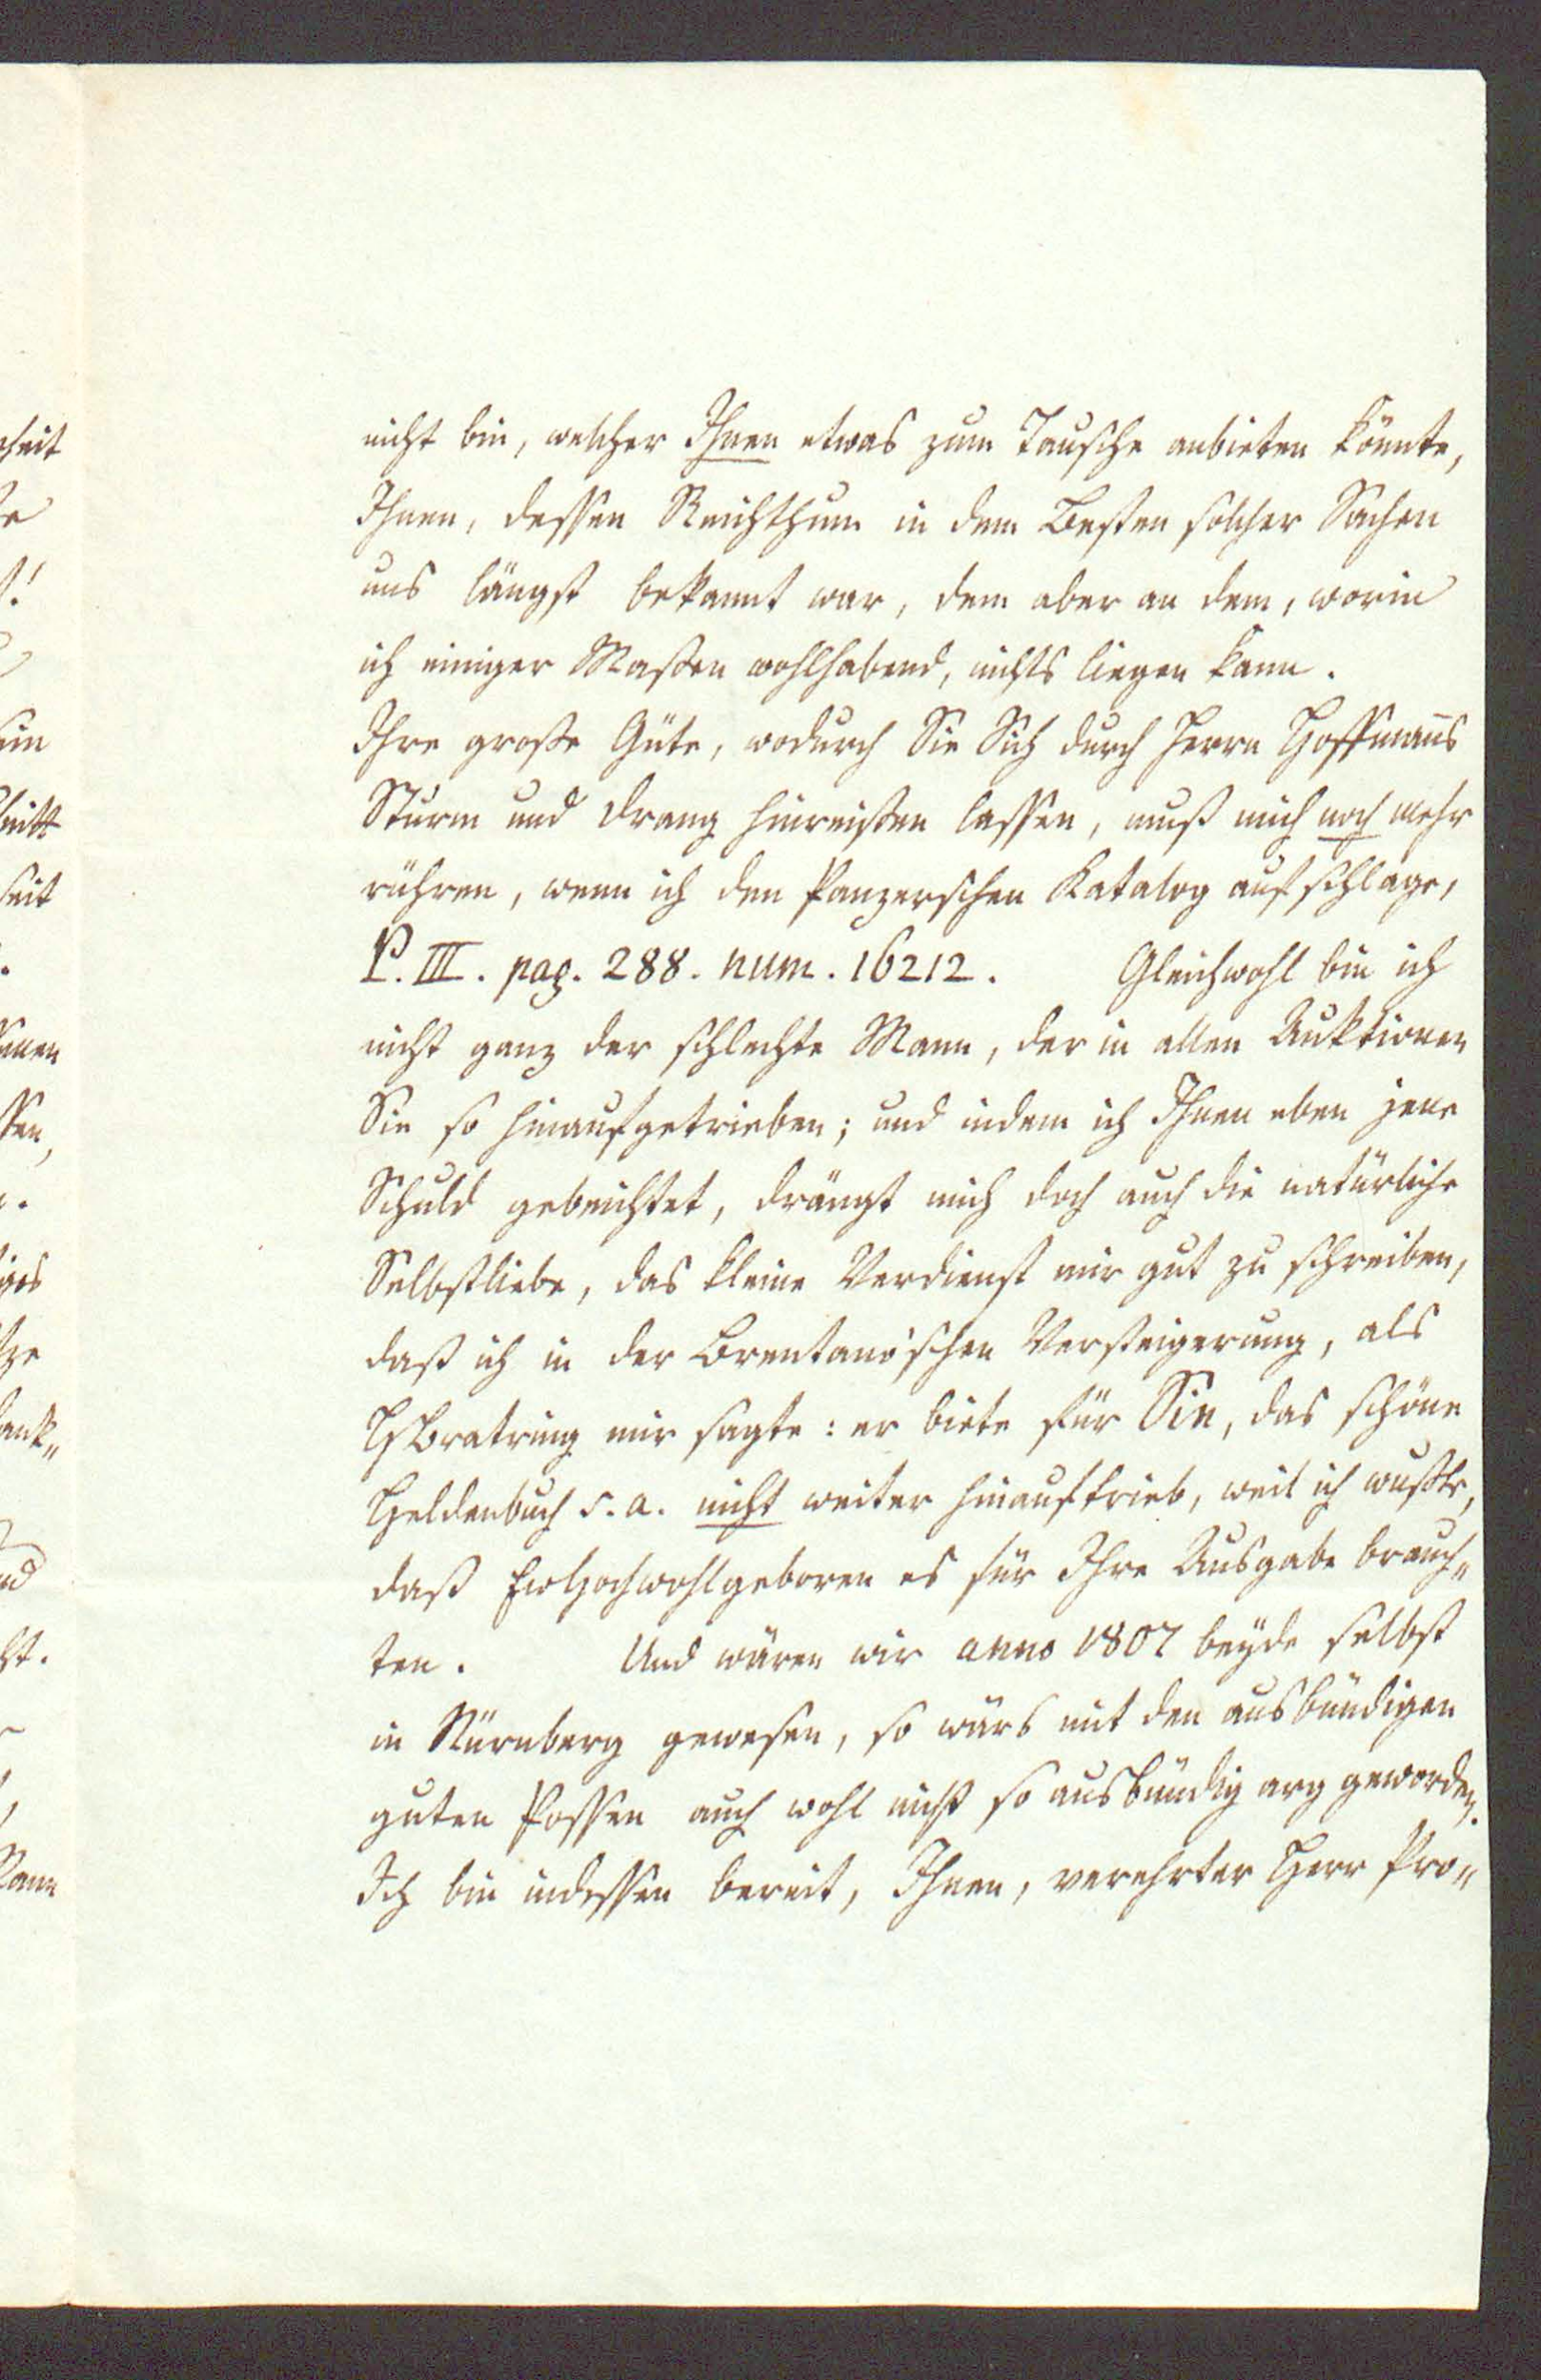 nicht bin, welcher Ihnen etwas zum Tausche anbieten könnte,
Ihnen, dessen Reichthum in dem Besten solcher Sachen
uns längst bekannt war, dem aber an dem, worin
ich einiger Maßen wohlhabend, nichts liegen kann.
Ihre große Güte, wodurch Sie Sich durch Herrn Hoffmañs
Sturm und Drang hinreißen lassen, muß mich noch mehr
rühren, wenn ich den Panzerschen Katalog aufschlage,
P. III. pag. 288. num. 16212. Gleichwohl bin ich
nicht ganz der schlechte Mann, der in allen Auktionen
Sie so hinaufgetrieben; und indem ich Ihnen eben jene
Schuld gebeichtet, drängt mich doch auch die natürliche
Selbstliebe, das kleine Verdienst mir gut zu schreiben,
daß ich in der Brentano'schen Versteigerung, als
HBratring mir sagte: er biete für Sie, das schöne
Heldenbuch s. a. nicht weiter hinauftrieb, weil ich wußte,
daß EwHochwohlgeboren es für Ihre Ausgabe brauch„
ten. Und wären wir anno 1807 beyde selbst
in Nürnberg gewesen, so wärs mit den ausbündigen
guten Possen auch wohl nicht so ausbündig arg geworden.
Ich bin indessen bereit, Ihnen, verehrter Herr Pro„